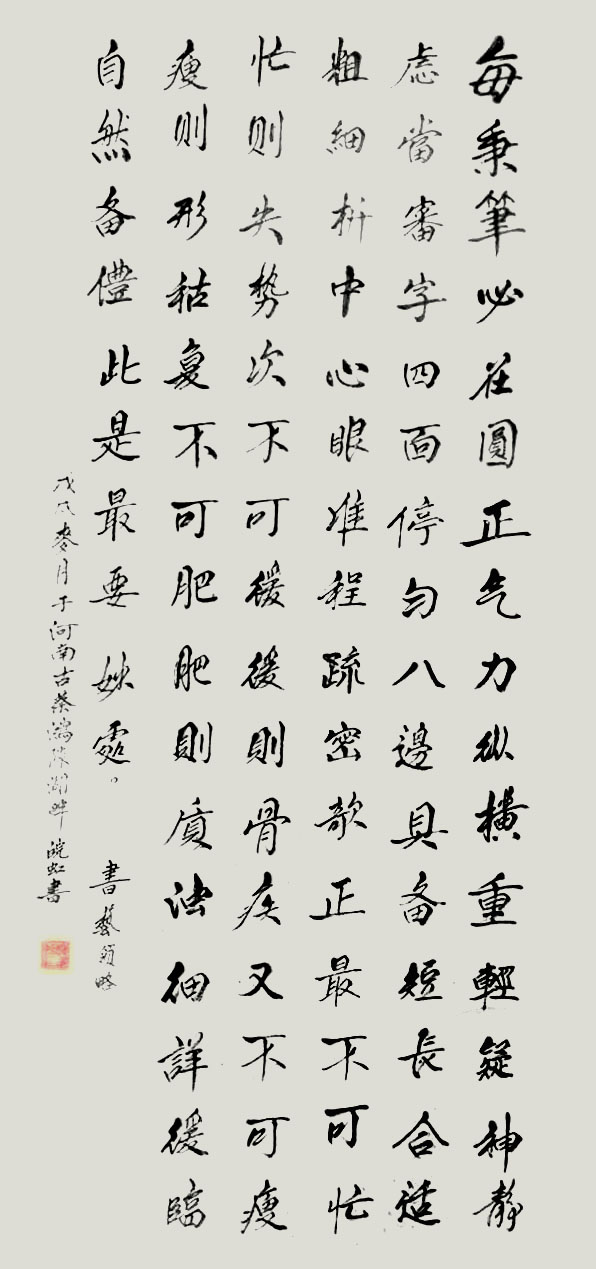 每秉筆必在圓正气力纵橫重輕凝神靜
虑當審字四面停匀八邊具备短長合适
粗細折中心眼准程疏密欹正最不可忙
忙则失势次不可緩緩則骨疾又不可瘦
瘦则形枯复不可肥肥則质浊細詳緩臨
自然备體此是最要妙處。 書藝略
戊戌麥月于河南古蔡鴻隙湖畔 皖虹書